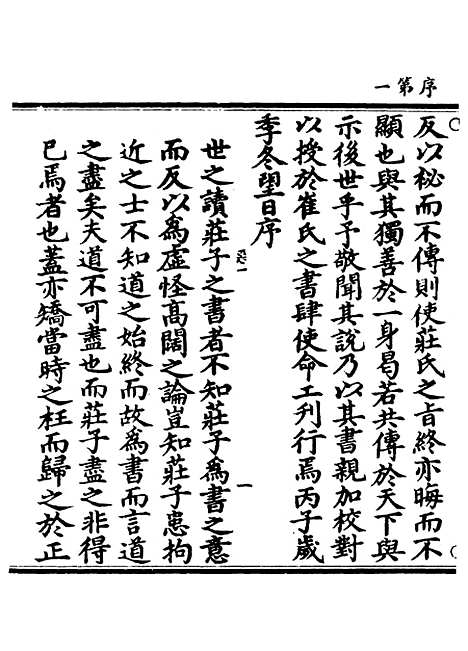 序第一
反以秘而不傳則使莊氏之旨終亦晦而不
顯也與其獨善於一身曷若共傳於天下與
示後世乎予敬聞其說乃以其書親加校對
以授於崔氏之書肆使命工刋行焉丙子歲
季冬望日序
世之讀莊子之書者不知莊子為書之意
而反以為虛怪髙闊之論豈知莊子患拘
近之士不知道之始終而故為書而言道
之盡矣夫道不可盡也而莊子盡之非得
已焉者也蓋亦矯當時之枉而歸之於正